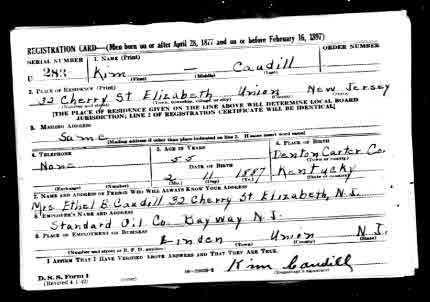 REGISTRATION CARD—(Men born on or after April 28, 1877 and on or before February 16, 1897)
SERIAL NUMBER 1. NAME (Print) ORDER NUMBER
U 283 Kim Caudill
(First) (Middle) (Last)
2. PLACE OF RESIDENCE (Print)
32 Cherry St Elizabeth Union New Jersey
(Number and street) (Town, township, village, or city) (County) (State)
[THE PLACE OF RESIDENCE GIVEN ON THE LINE ABOVE WILL DETERMINE LOCAL BOARD
JURISDICTION; LINE 2 OF REGISTRATION CERTIFICATE WILL BE IDENTICAL]
3. MAILING ADDRESS
Same
[Mailing address if other than place indicated on line 2. If same insert word same]
4. TELEPHONE 5. AGE IN YEARS 6. PLACE OF BIRTH
None 55 Denton Carter Co.
DATE OF BIRTH (Town or county)
2 11 1887 Kentucky
(Exchange) (Number) (Mo.) (Day) (Yr.) (State or country)
7. NAME AND ADDRESS OF PERSON WHO WILL ALWAYS KNOW YOUR ADDRESS
Mrs Ethel B. Caudill 32 Cherry St Elizabeth, N.J.
8. EMPLOYER'S NAME AND ADDRESS
Standard Oil Co. Bayway N.J.
9. PLACE OF EMPLOYMENT OR BUSINESS
Linden Union N.J.
(Number and street or R. F. D. number) (Town) (County) (State)
I AFFIRM THAT I HAVE VERIFIED ABOVE ANSWERS AND THAT THEY ARE TRUE.
D. S. S. Form 1 Kim Caudill
(Revised 4-1-42) (Registrant's signature)